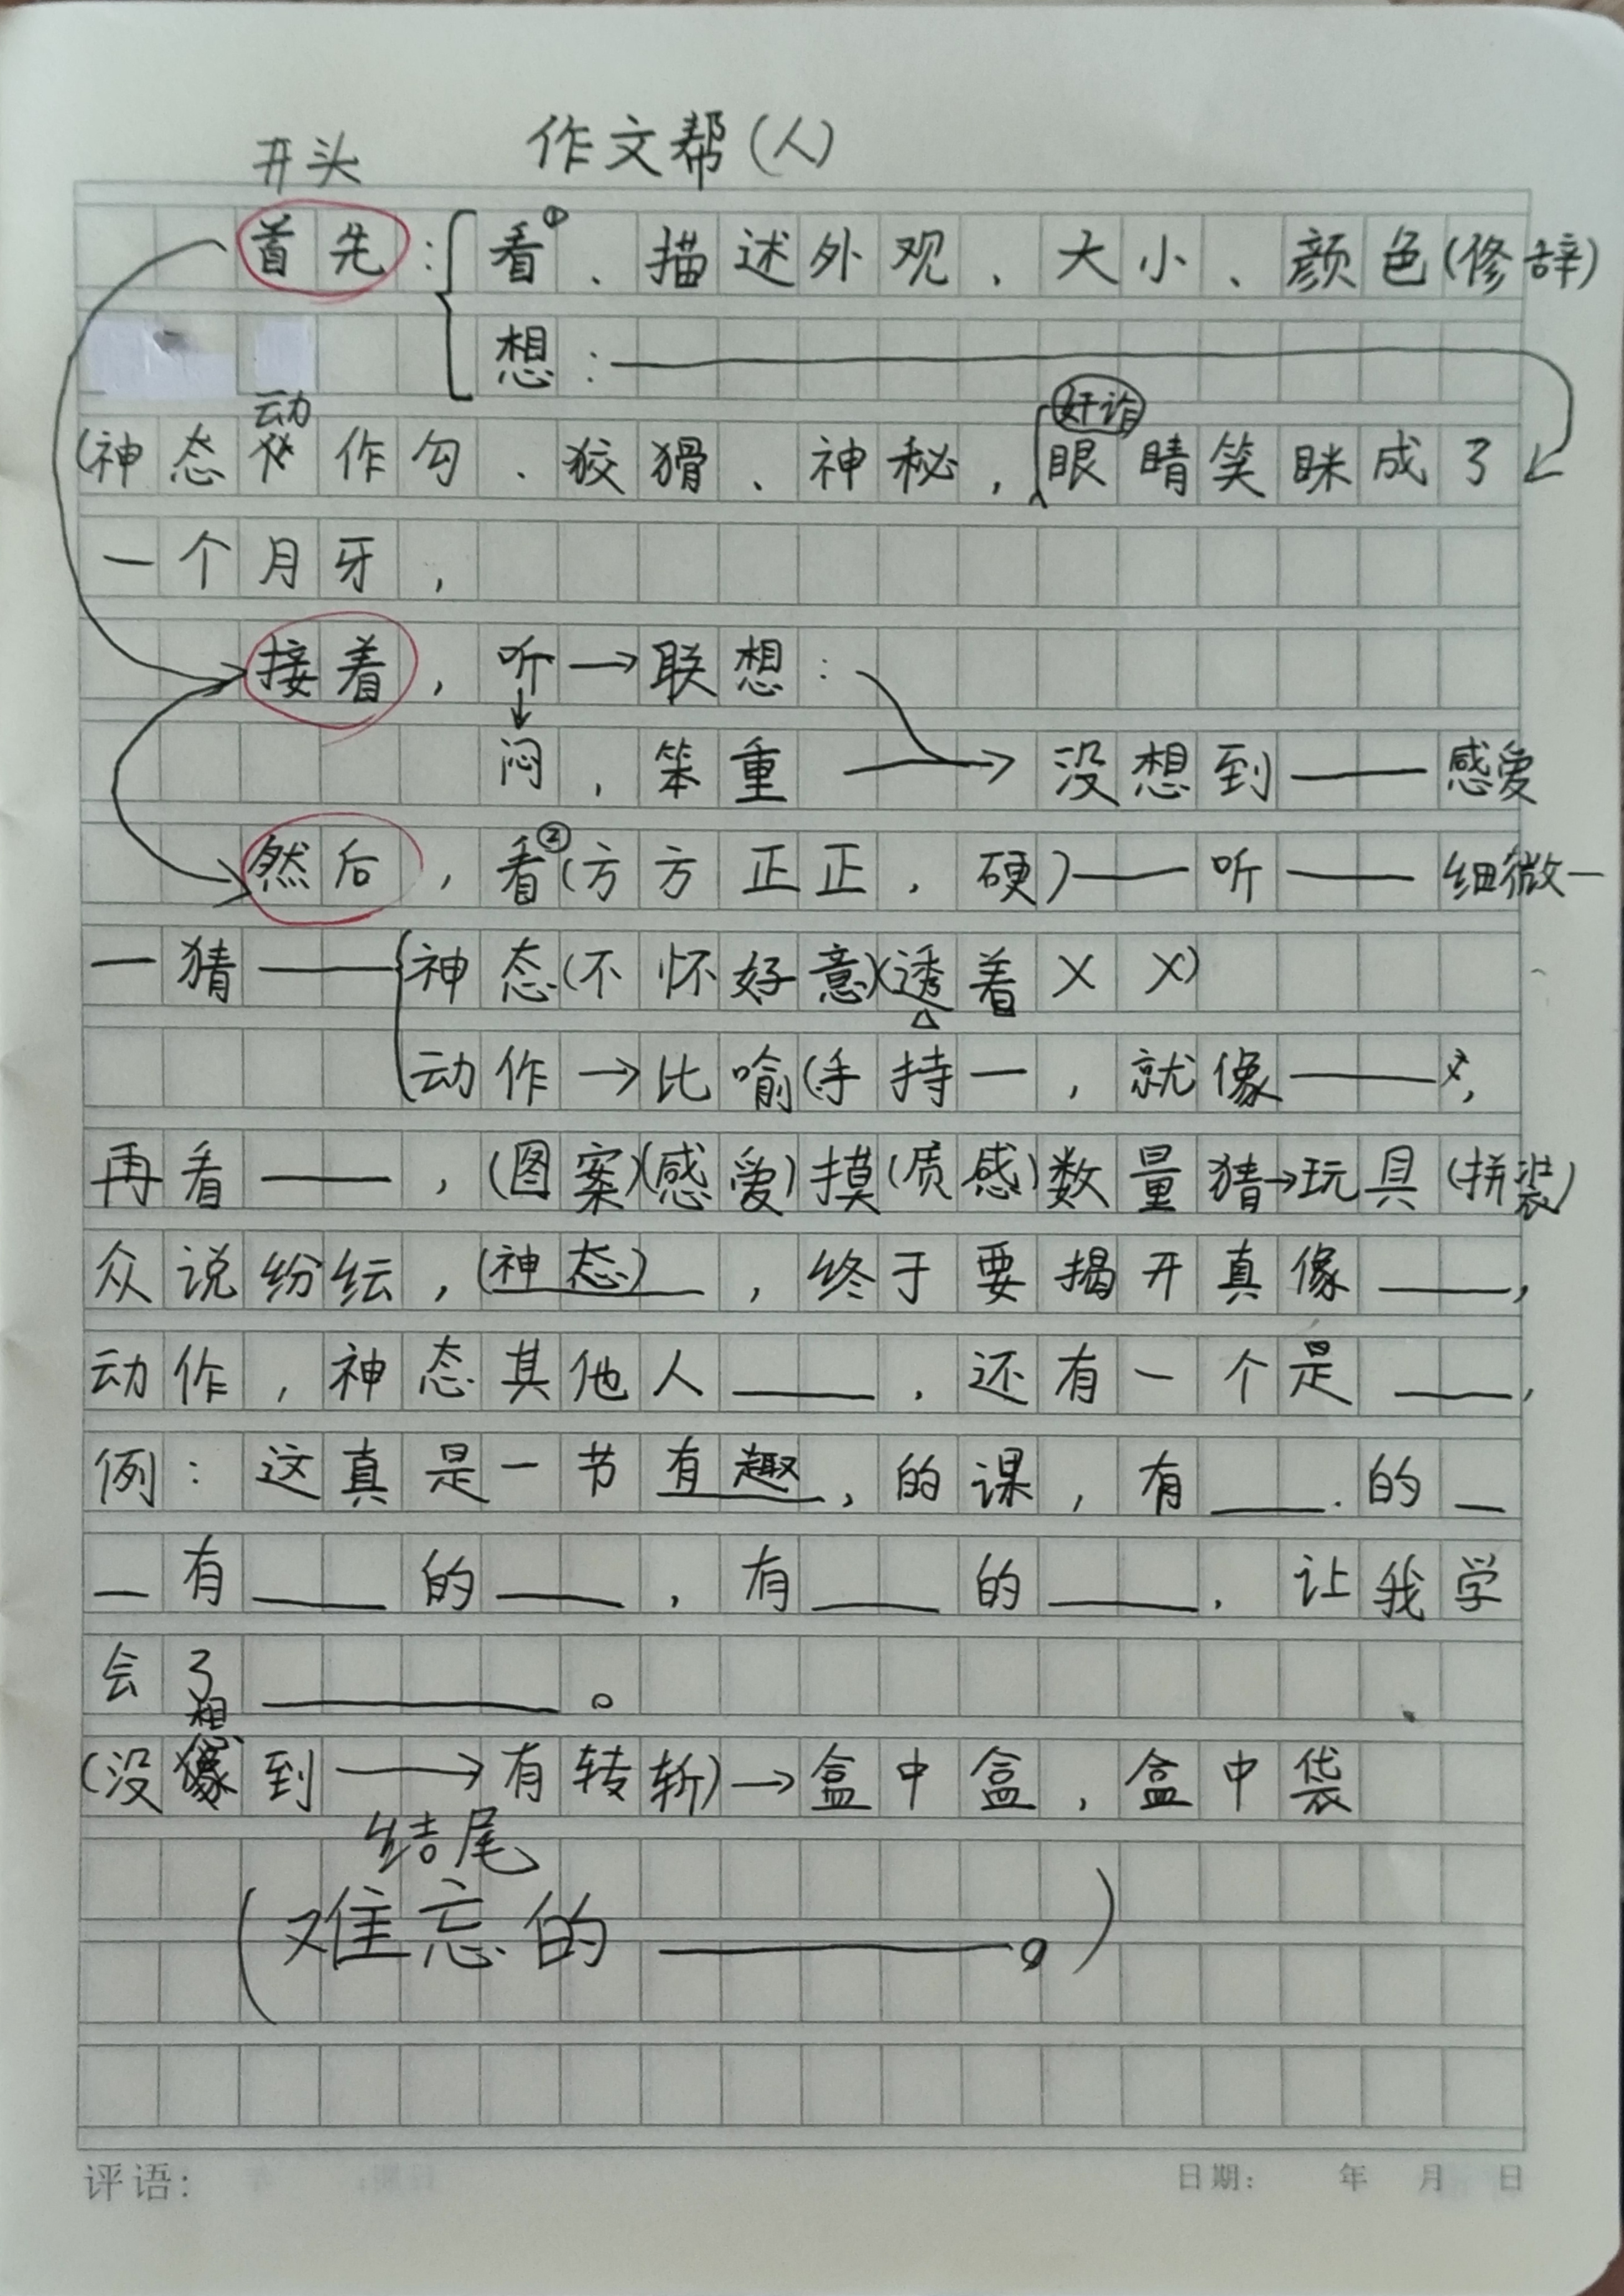 作文帮(人)
开头
首先:看①、描述外观、大小、颜色(修辞)
想:
动
奸诈
(神态作勾、狡猾、神秘,眼睛笑眯成了
一个月牙,
接着,听→联想:
↓
闷,笨重→没想到——感爱
然后,看②(方方正正,硬)——听——细微一
一猜——神态(不怀好意)(透着XX)
动作→比喻(手持一,就像——),
再看——,(图案)(感爱)摸(质感)数量猜→玩具(拼装)
众说纷纭,(神态)__,终于要揭开真像__,
动作,神态其他人__,还有一个是__,
例:这真是一节有趣,的课,有__.的_
_有__的__,有__的__,让我学
会了____。
想
(没到→有转斩)→盒中盒,盒中袋
结尾
(难忘的____。)
评语: 日期: 年 月 日